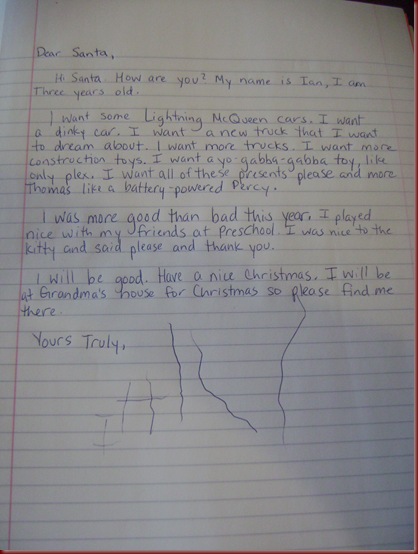 Dear Santa,
Hi Santa. How are you? My name is Ian, I am
Three years old.
I want some Lightning McQueen cars. I want
a dinky car. I want a new truck that I want
to dream about. I want more trucks. I want more
construction toys. I want a yo-gabba-gabba toy, like
only plex. I want all of these presents please and more
Thomas like a battery-powered Percy.
I was more good than bad this year. I played
nice with my friends at Preschool. I was nice to the
Kitty and said please and thank you.
I will be good. Have a nice Christmas. I will be
at Grandma's house for Christmas so please find me
there.
Yours Truly,